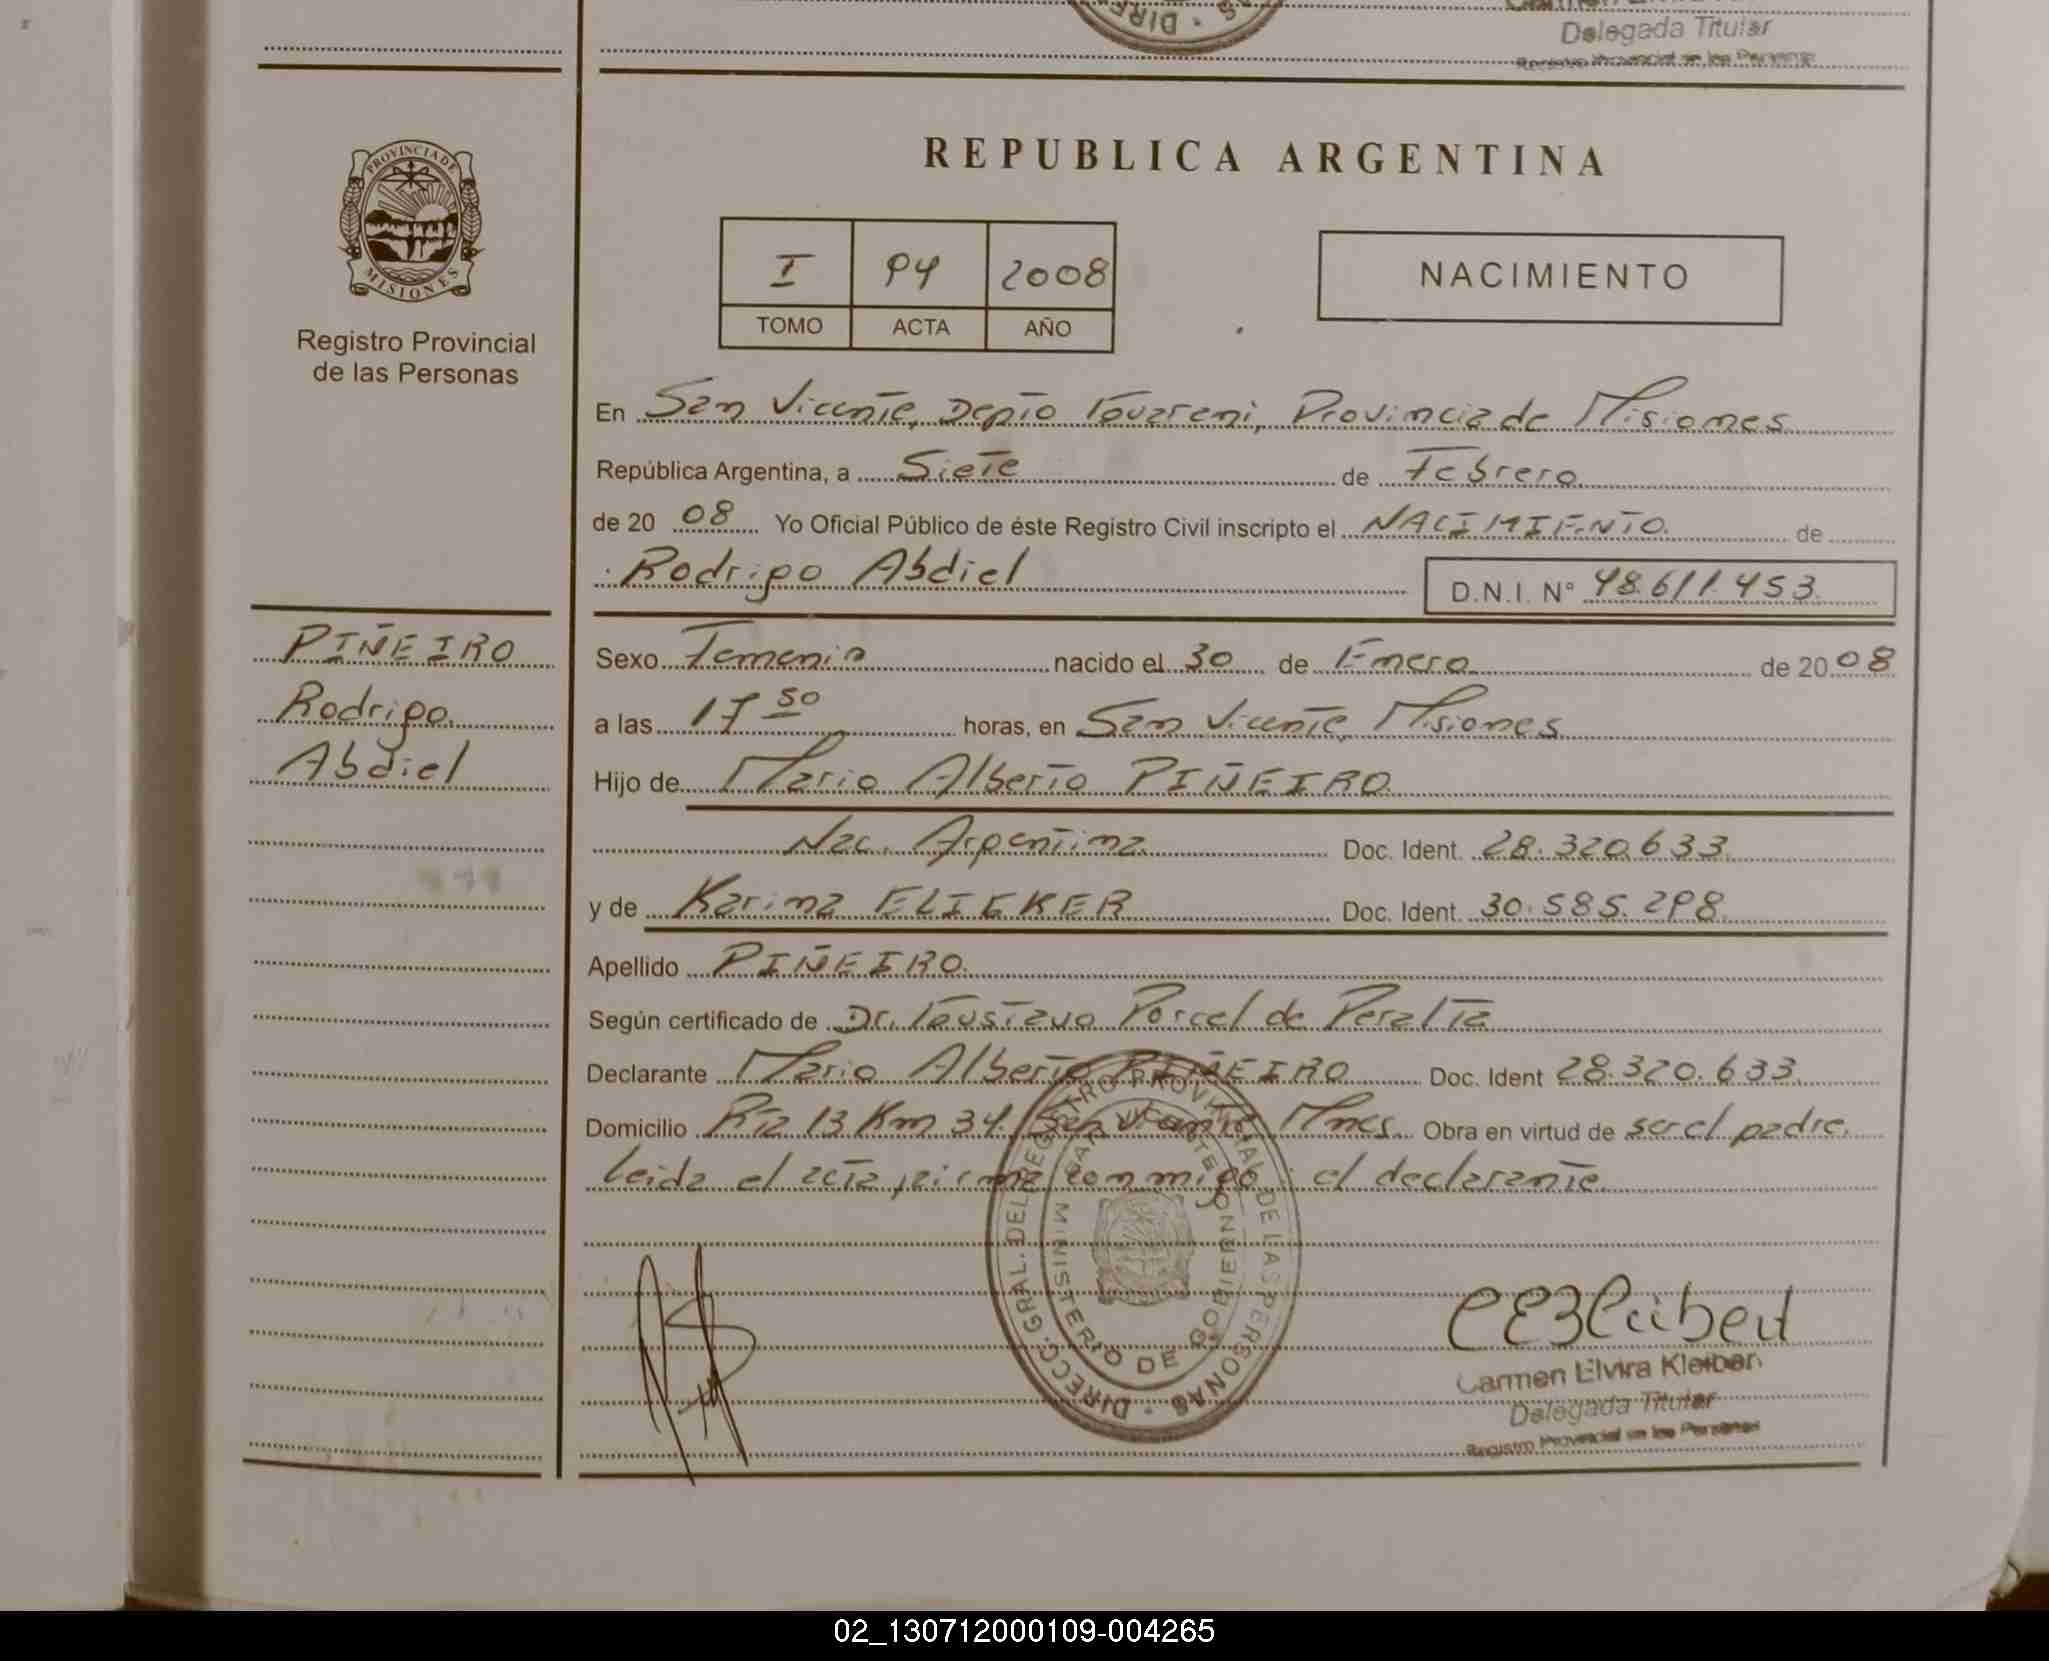 Delegada Titular
Registro Provincial de las Personas
PROVINCIA DE
MISIONES
Registro Provincial
de las Personas
REPUBLICA ARGENTINA
I 94 2008
TOMO ACTA AÑO
NACIMIENTO
En San Vicente, Depto Guarani, Provincia de Misiones
República Argentina, a Siete de Febrero
de 20 08 Yo Oficial Público de éste Registro Civil inscripto el NACIMIENTO de
Rodrigo Abdiel D.N.I. N° 48.611.453
PIÑEIRO
Rodrigo
Abdiel
Sexo Femenin nacido el 30 de Enero de 20 08
a las 17 50 horas, en San Vicente Misiones
Hijo de Mario Alberto PIÑEIRO
Nac. Argentina Doc. Ident. 28.320.633
y de Karina ELIEKER Doc. Ident. 30.585.298
Apellido PIÑEIRO
Según certificado de Dr. Gustavo Porcel de Peralta
Declarante Mario Alberto PIÑEIRO Doc. Ident 28.320.633
Domicilio Rta 13 Km 34. San Vicente Mnes. Obra en virtud de ser el padre.
leida el acta, firma conmigo el declarante.
DIRECC. GRAL. DEL REGISTRO PROVINCIAL DE LAS PERSONAS
SAN VICENTE
MINISTERIO DE GOBIERNO
Carmen Elvira Kleiber
Delegada Titular
Registro Provincial de las Personas
02_130712000109-004265